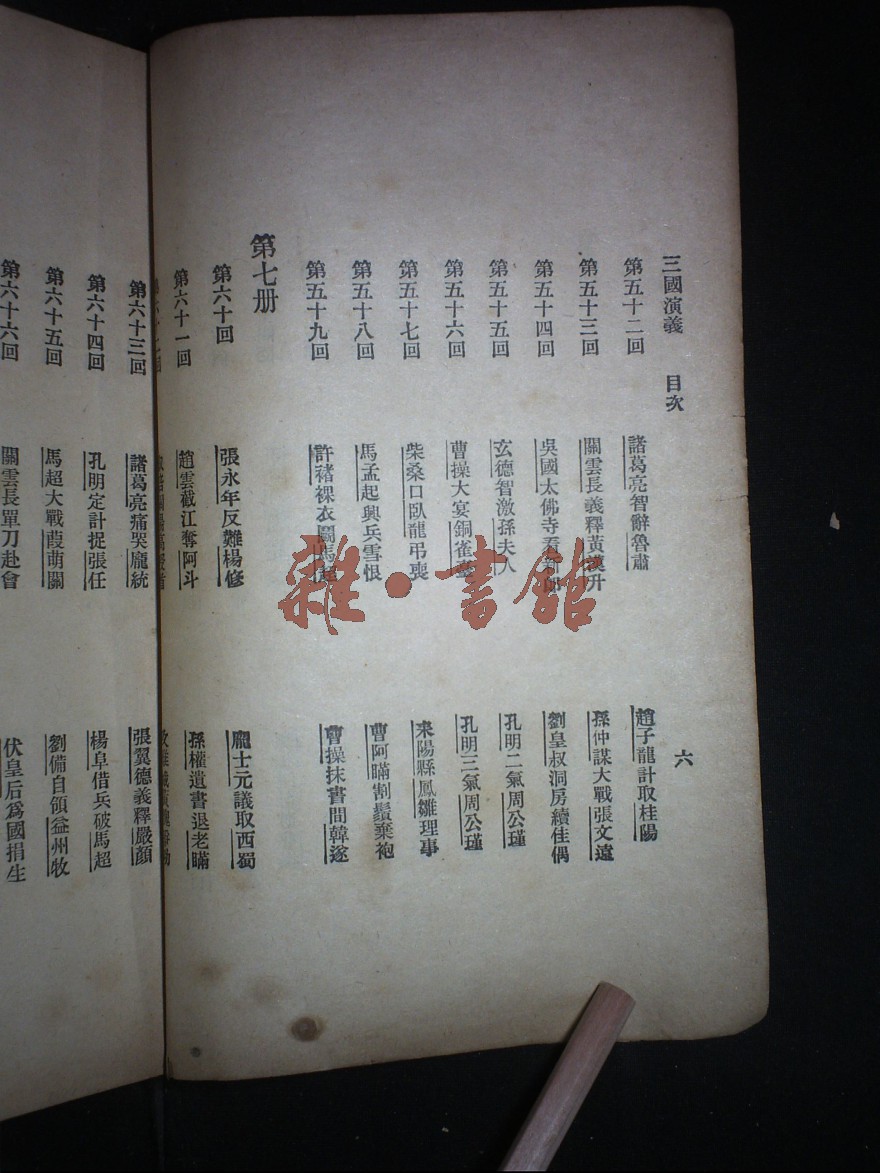 三國演義 目次 六
第五十二回 諸葛亮智辭魯肅 趙子龍計取桂陽
第五十三回 關雲長義釋黃漢升 孫仲謀大戰張文遠
第五十四回 吳國太佛寺看新郎 劉皇叔洞房續佳偶
第五十五回 玄德智激孫夫人 孔明二氣周公瑾
第五十六回 曹操大宴銅雀臺 孔明三氣周公瑾
第五十七回 柴桑口臥龍弔喪 耒陽縣鳳雛理事
第五十八回 馬孟起興兵雪恨 曹阿瞞割鬚棄袍
第五十九回 許褚裸衣鬬馬超 曹操抹書間韓遂
第七册
第六十回 張永年反難楊修 龐士元議取西蜀
第六十一回 趙雲截江奪阿斗 孫權遺書退老瞞
第六十三回 諸葛亮痛哭龐統 張翼德義釋嚴顏
第六十四回 孔明定計捉張任 楊阜借兵破馬超
第六十五回 馬超大戰葭萌關 劉備自領益州牧
第六十六回 關雲長單刀赴會 伏皇后爲國捐生
雜·書館